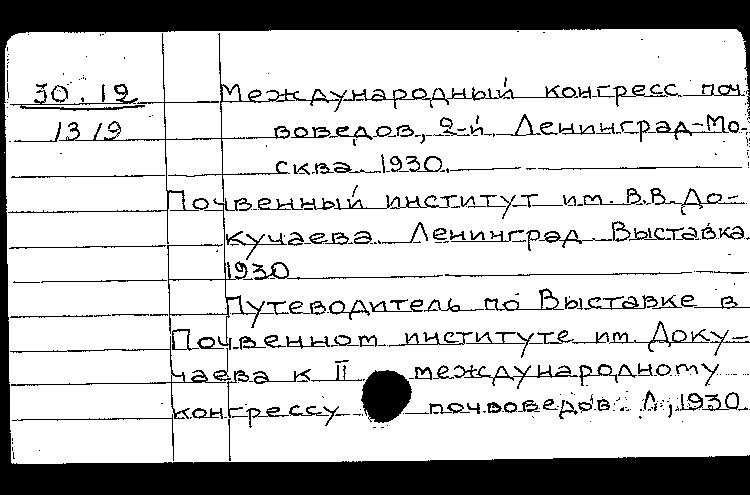 30.12 Международный конгресс поч
1319 воведов, 2-й. Ленинград-Мо-
сква. 1930.
Почвенный институт им. В.В. До-
кучаева. Ленинград. Выставка.
1930.
Путеводитель по Выставке в
Почвенном институте им. Доку-
чаева к II международному
конгрессу почвоведов. Л., 1930.